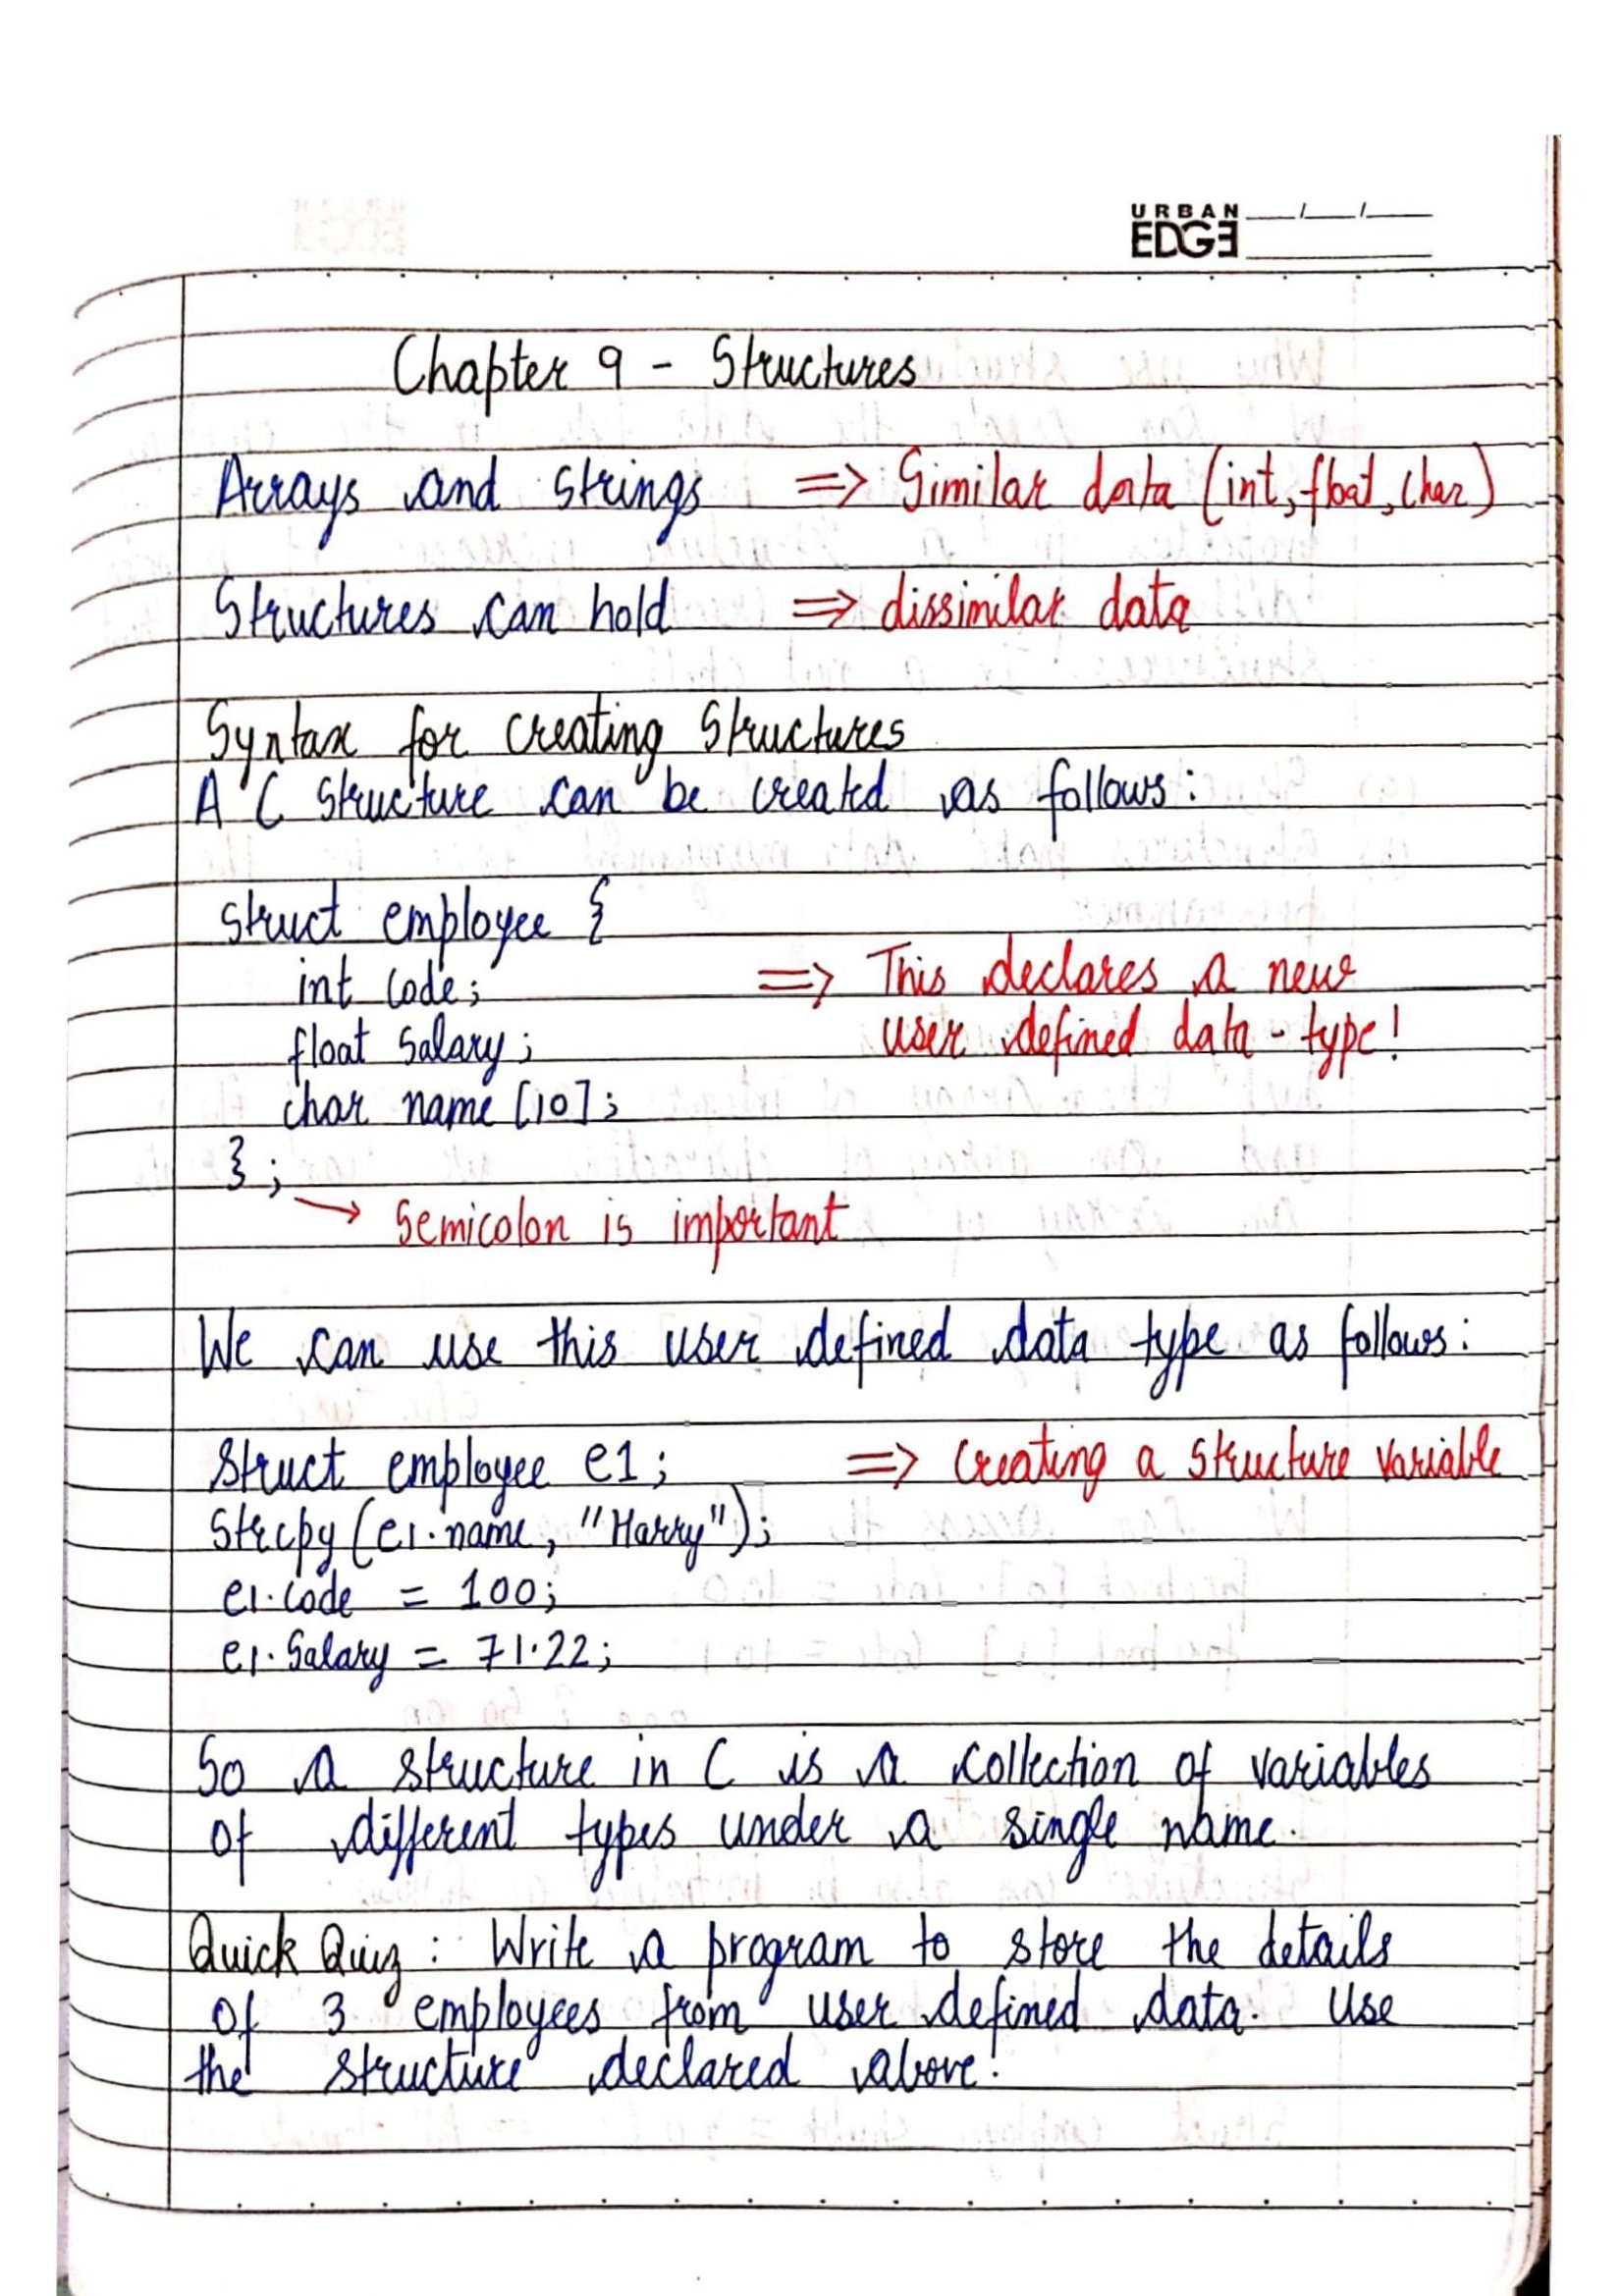 URBAN
EDGE
Chapter 9 - Structures
Arrays and strings => Similar data (int, float, char)
Structures can hold => dissimilar data
Syntax for creating Structures
A C Structure can be created as follows:
struct employee {
int code; => This declares a new
float salary; user defined data-type!
char name [10];
};
→ Semicolon is important
We can use this user defined data type as follows:
Struct employee e1; => creating a structure variable
Strcpy (e1.name, "Harry");
e1.code = 100;
e1.Salary = 71.22;
So a structure in C is a collection of variables
of different types under a single name.
Quick Quiz: Write a program to store the details
of 3 employees from user defined data. Use
the structure declared above.